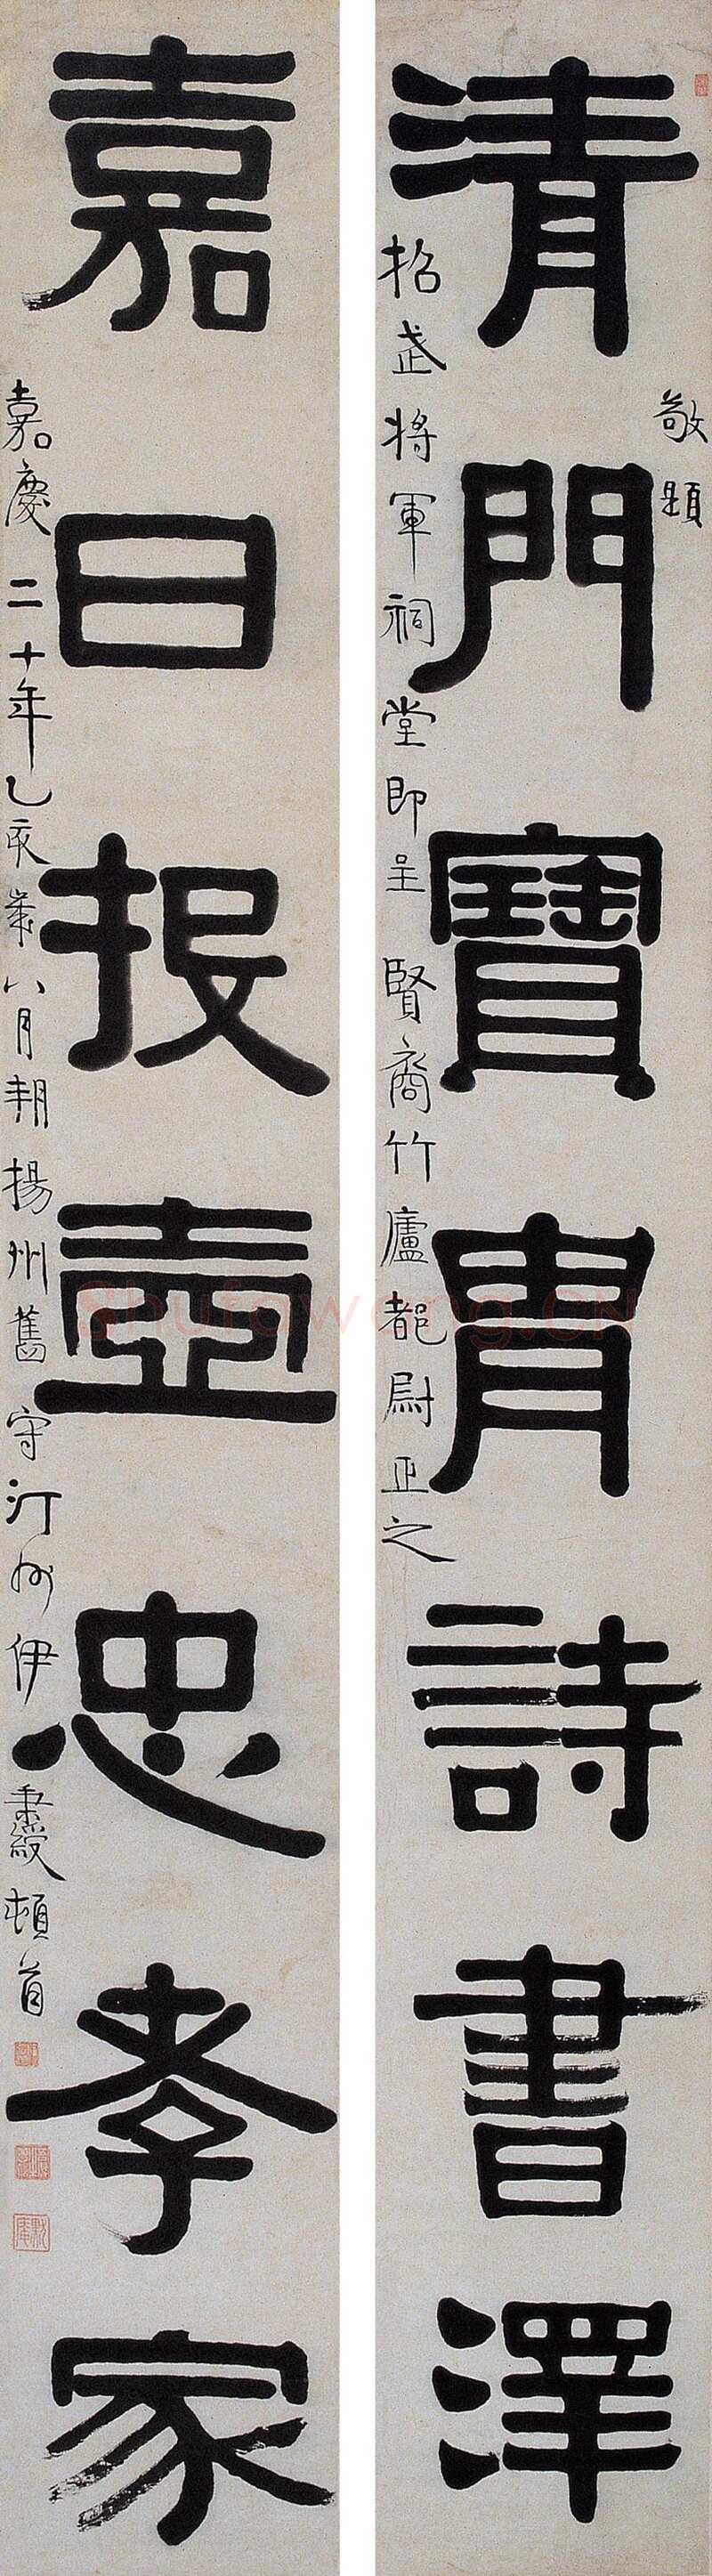 清門寶胄詩書澤
敬題
招武將軍祠堂即呈賢裔竹廬都尉正之
嘉日投壺忠孝家
嘉慶二十年乙亥歲八月朔揚州舊守汀州伊秉綬頓首
Shufawang.CN